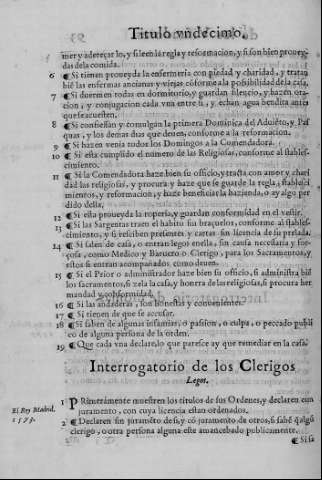 Titulo vndecimo,
mer y adereçar lo, y si leen la regla y reformacion, y si son bien proueydas
das de la comida.
6 ¶ Si tienen proueyda la enfermeria con piedad y charidad, y tratan
biẽ las enfermas ancianas y viejas cõforme a la possibilidad de la casa,
7 ¶ Si duermen todas en dormitorio, y guardan silencio, y hazen ora-
cion, y conjugacion cada vna entre si, y echan agua bendita antes
que se acuesten.
8 ¶ Si confiessan y comulgan la primera Dominica del Aduiẽto, y Pas
quas, y los demas dias que deuen, conforme a la reformacion.
9 ¶ Si hazen venia todos los Domingos a la Comendadora.
10 ¶ Si esta cumplido el numero de las Religiosas, conforme al estables-
cimiento.
11 ¶ Si la Comendadora haze bien su officio, y tracta con amor y chari
dad las religiosas, y procura y haze que se guarde la regla, establsci
mientos, y reformacion, y haze beneficiar la hazienda, o ay algo per
dido della.
12 ¶ Si esta proueyda la roperia, y guardan conformidad en el vestir.
13 ¶ Si las Sargentas traen el habito sin braçuelos, conforme al establesci-
cimiento, y si resciben presentes y cartas sin licencia de su prelada.
14 ¶ Si salen de casa, o entran legos en ella, sin causa necessaria y for-
çosa, como Medico y Baruero o Clerigo, para los Sacramentos, y
estos si entran acompañados como deuen.
15 ¶ Si el Prior o administrador haze bien su officio, si administra biẽ
los sacramentos, si zela la casa, y honrra de las religiosas, si procura her
mandad y conformidad.
16 ¶ Si las andaderas son honestas y conuenientes.
17 ¶ Si tienen de que se acusar.
18 ¶ Si saben de algunas infamias, o passion, o culpa, o peccado publi
co de alguna persona de la orden.
19 ¶ Que cada vna declare, lo que paresce ay que remediar en la casa.
Interrogatorio de los Clerigos
Legos.
El Rey Madrid.
1573.
1 PRimeramente muestren los titulos de sus Ordenes, y declaren con
juramento, con cuya licencia estan ordenados.
2 ¶ Declaren sin juramẽto de si, y cõ juramento de otros, si sabẽ q̃ algũ
clerigo, o otra persona alguna este amancebado publicamente.
¶ Si sa